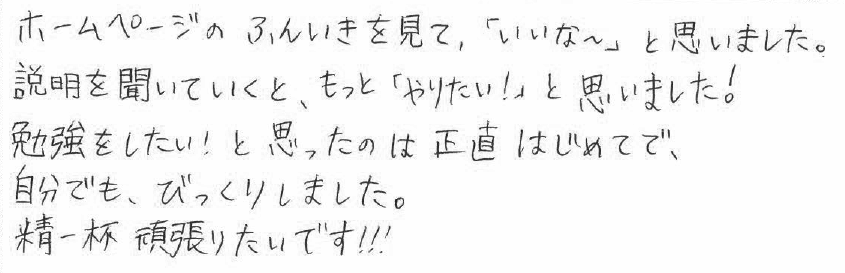 ホームページの ふんいきを見て,「いいな〜」と思いました。
説明を聞いていくと、もっと「やりたい!」と思いました!
勉強をしたい! と思ったのは 正直 はじめてで、
自分でも、びっくりしました。
精一杯 頑張りたいです!!!